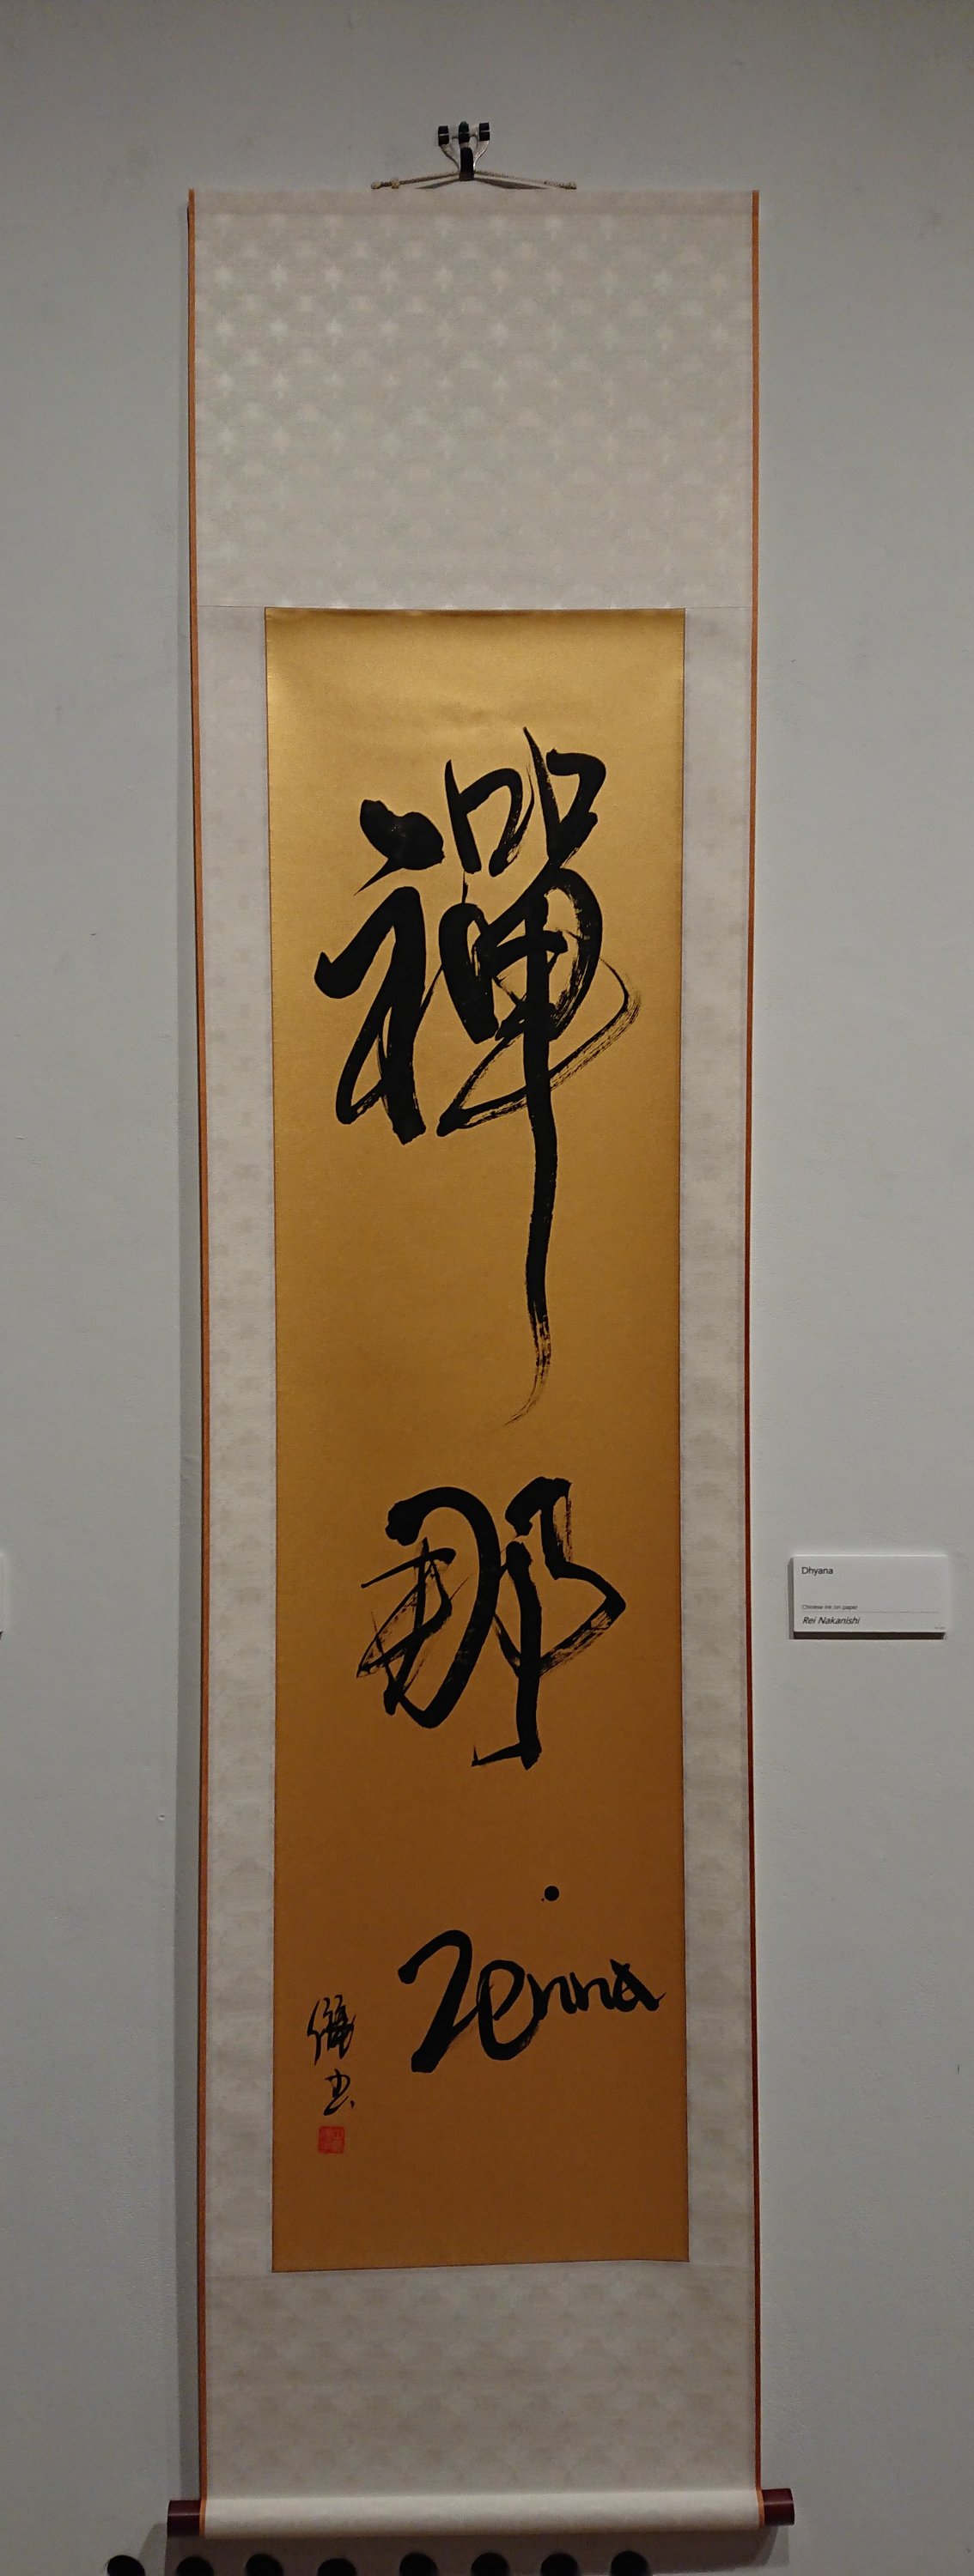 禪
那
Zenna
Dhyana
Chinese ink on paper
Rei Nakanishi